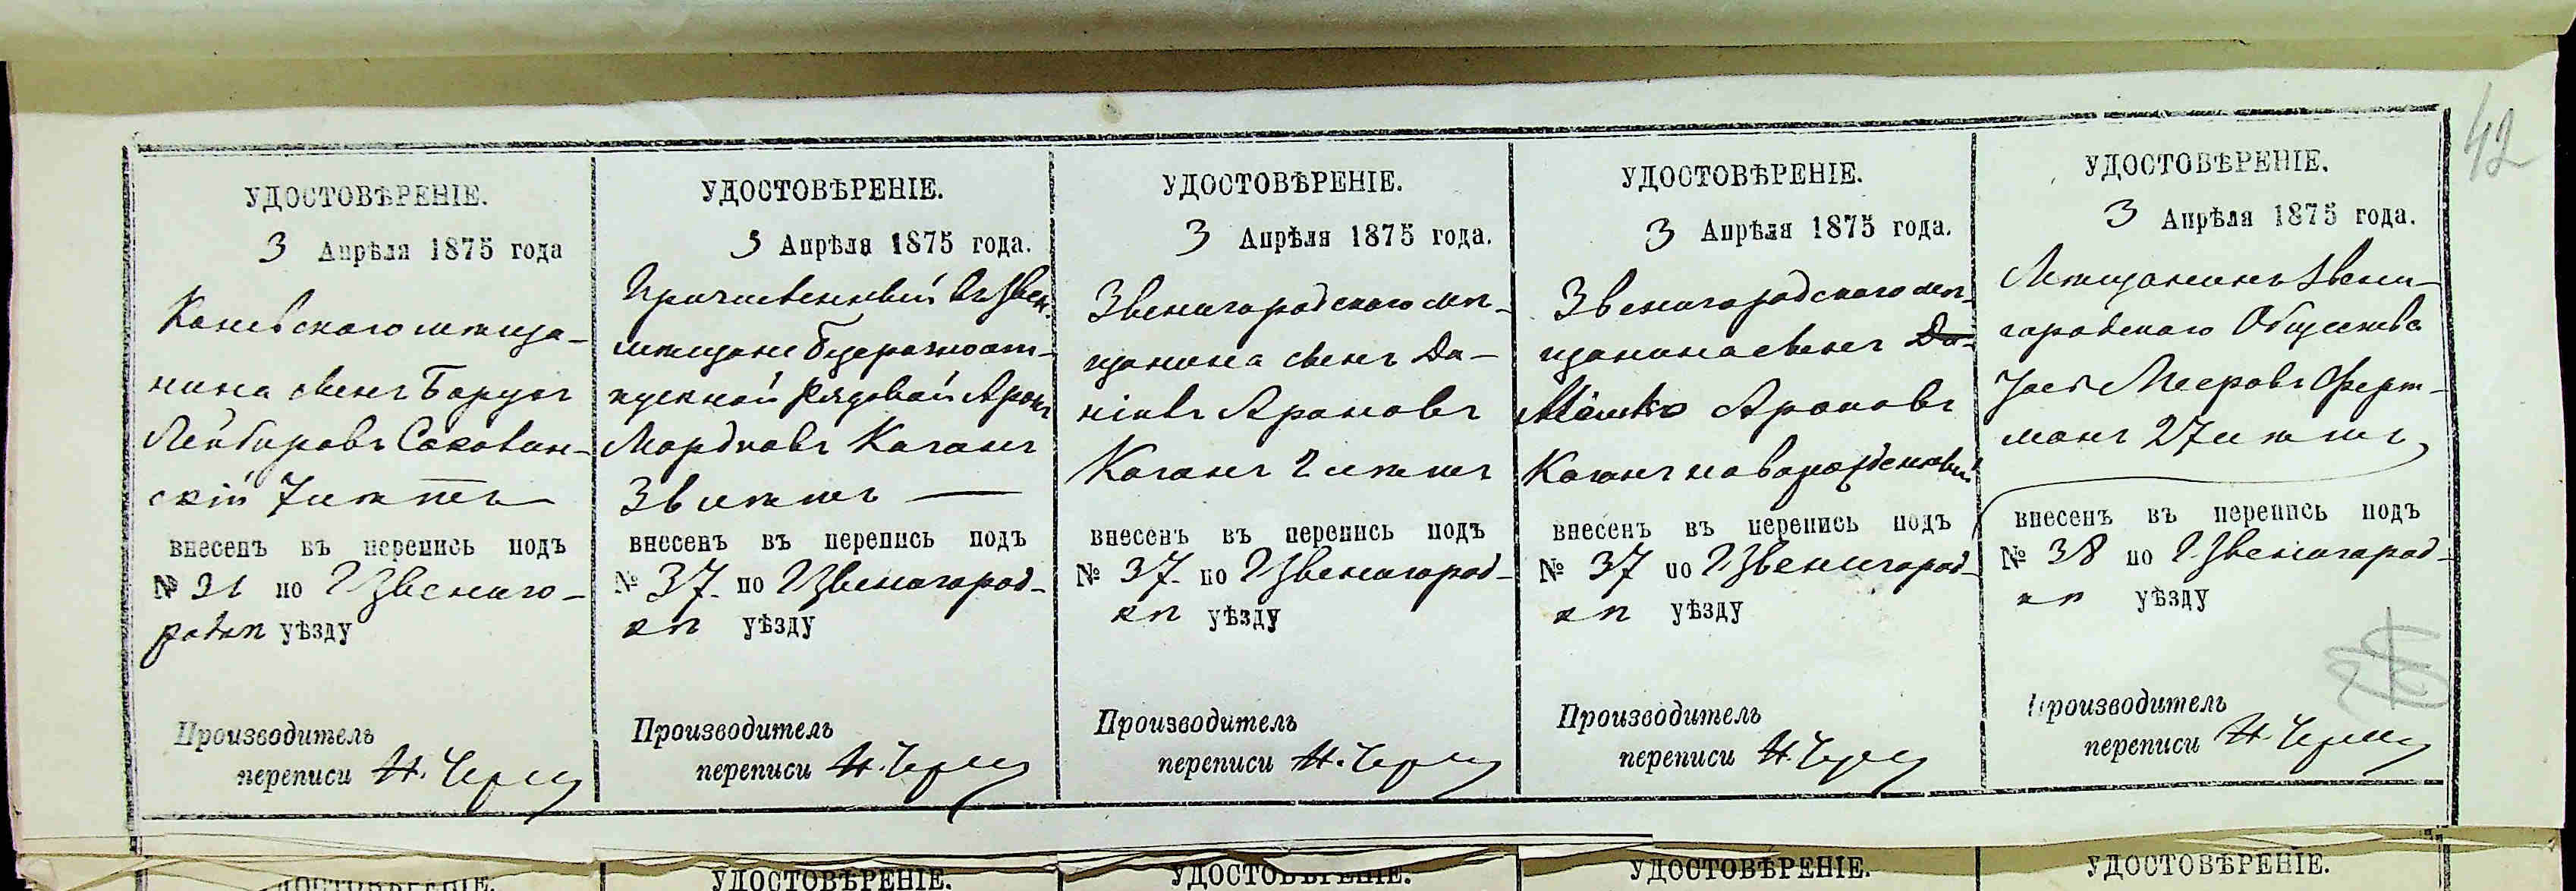 42
УДОСТОВѢРЕНІЕ.
3 Апрѣля 1875 года
Каневскаго мѣща-
нина сынъ Борухъ
Лейбировъ
скій 7 лѣтъ
внесенъ въ перепись подъ
№ 31 по Г Звениго-
родкѣ уѣзду
Производитель
переписи Н.
УДОСТОВѢРЕНІЕ.
3 Апрѣля 1875 года.
Причисленный въ Звен.
мѣщане
пускной Рядовой Аронъ
Мордковъ Каганъ
лѣтъ
внесенъ въ перепись подъ
№ 37 по Г Звенигород-
кѣ уѣзду
Производитель
переписи Н.
УДОСТОВѢРЕНІЕ.
3 Апрѣля 1875 года.
Звенигородскаго мѣ-
щанина сынъ Да-
ніилъ Ароновъ
Каганъ 2 лѣтъ
внесенъ въ перепись подъ
№ 37 по Г Звенигород-
кѣ уѣзду
Производитель
переписи Н.
УДОСТОВѢРЕНІЕ.
3 Апрѣля 1875 года.
Звенигородскаго мѣ-
щанина сынъ Да-
Мошко Ароновъ
Каганъ новорожденный
внесенъ въ перепись подъ
№ 37 по Г Звенигород-
кѣ уѣзду
Производитель
переписи Н.
УДОСТОВѢРЕНІЕ.
3 Апрѣля 1875 года.
Мѣщанинъ Звени-
городскаго Общества
Мееровъ Ферт-
манъ 27 лѣтъ
внесенъ въ перепись подъ
№ 38 по Г Звенигород-
кѣ уѣзду
Производитель
переписи Н.
УДОСТОВѢРЕНІЕ.
УДОСТОВѢРЕНІЕ.
УДОСТОВѢРЕНІЕ.
УДОСТОВѢРЕНІЕ.
УДОСТОВѢРЕНІЕ.